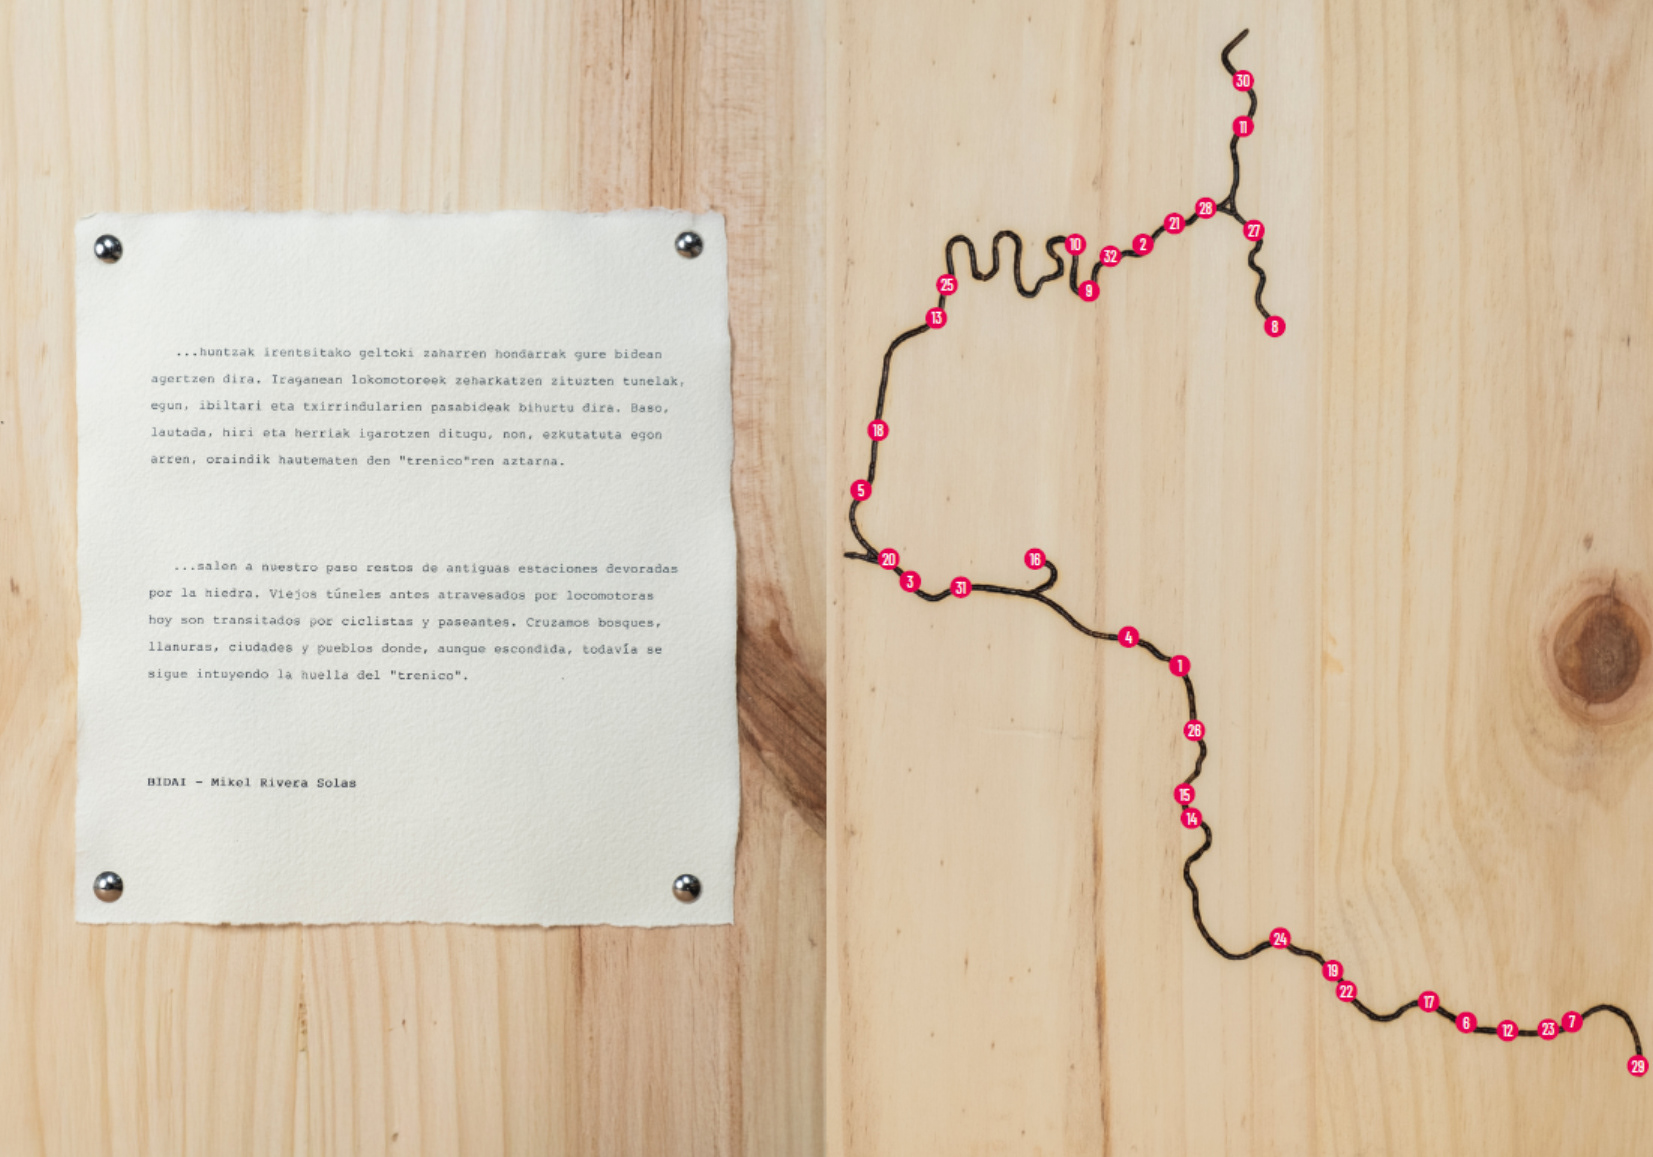 ...huntzak irentsitako geltoki zaharren hondarrak gure bidean
agertzen dira. Iraganean lokomotoreek zeharkatzen zituzten tunelak,
egun, ibiltari eta txirrindularien pasabideak bihurtu dira. Baso,
lautada, hiri eta herriak igarotzen ditugu, non, ezkutatuta egon
arren, oraindik hautematen den "trenico"ren aztarna.
...salen a nuestro paso restos de antiguas estaciones devoradas
por la hiedra. Viejos túneles antes atravesados por locomotoras
hoy son transitados por ciclistas y paseantes. Cruzamos bosques,
llanuras, ciudades y pueblos donde, aunque escondida, todavía se
sigue intuyendo la huella del "trenico".
BIDAI - Mikel Rivera Solas
30
11
28
21
27
2
10
32
25
9
13
8
18
5
20
16
3
31
4
1
26
15
14
24
19
22
17
6
12
23
7
29